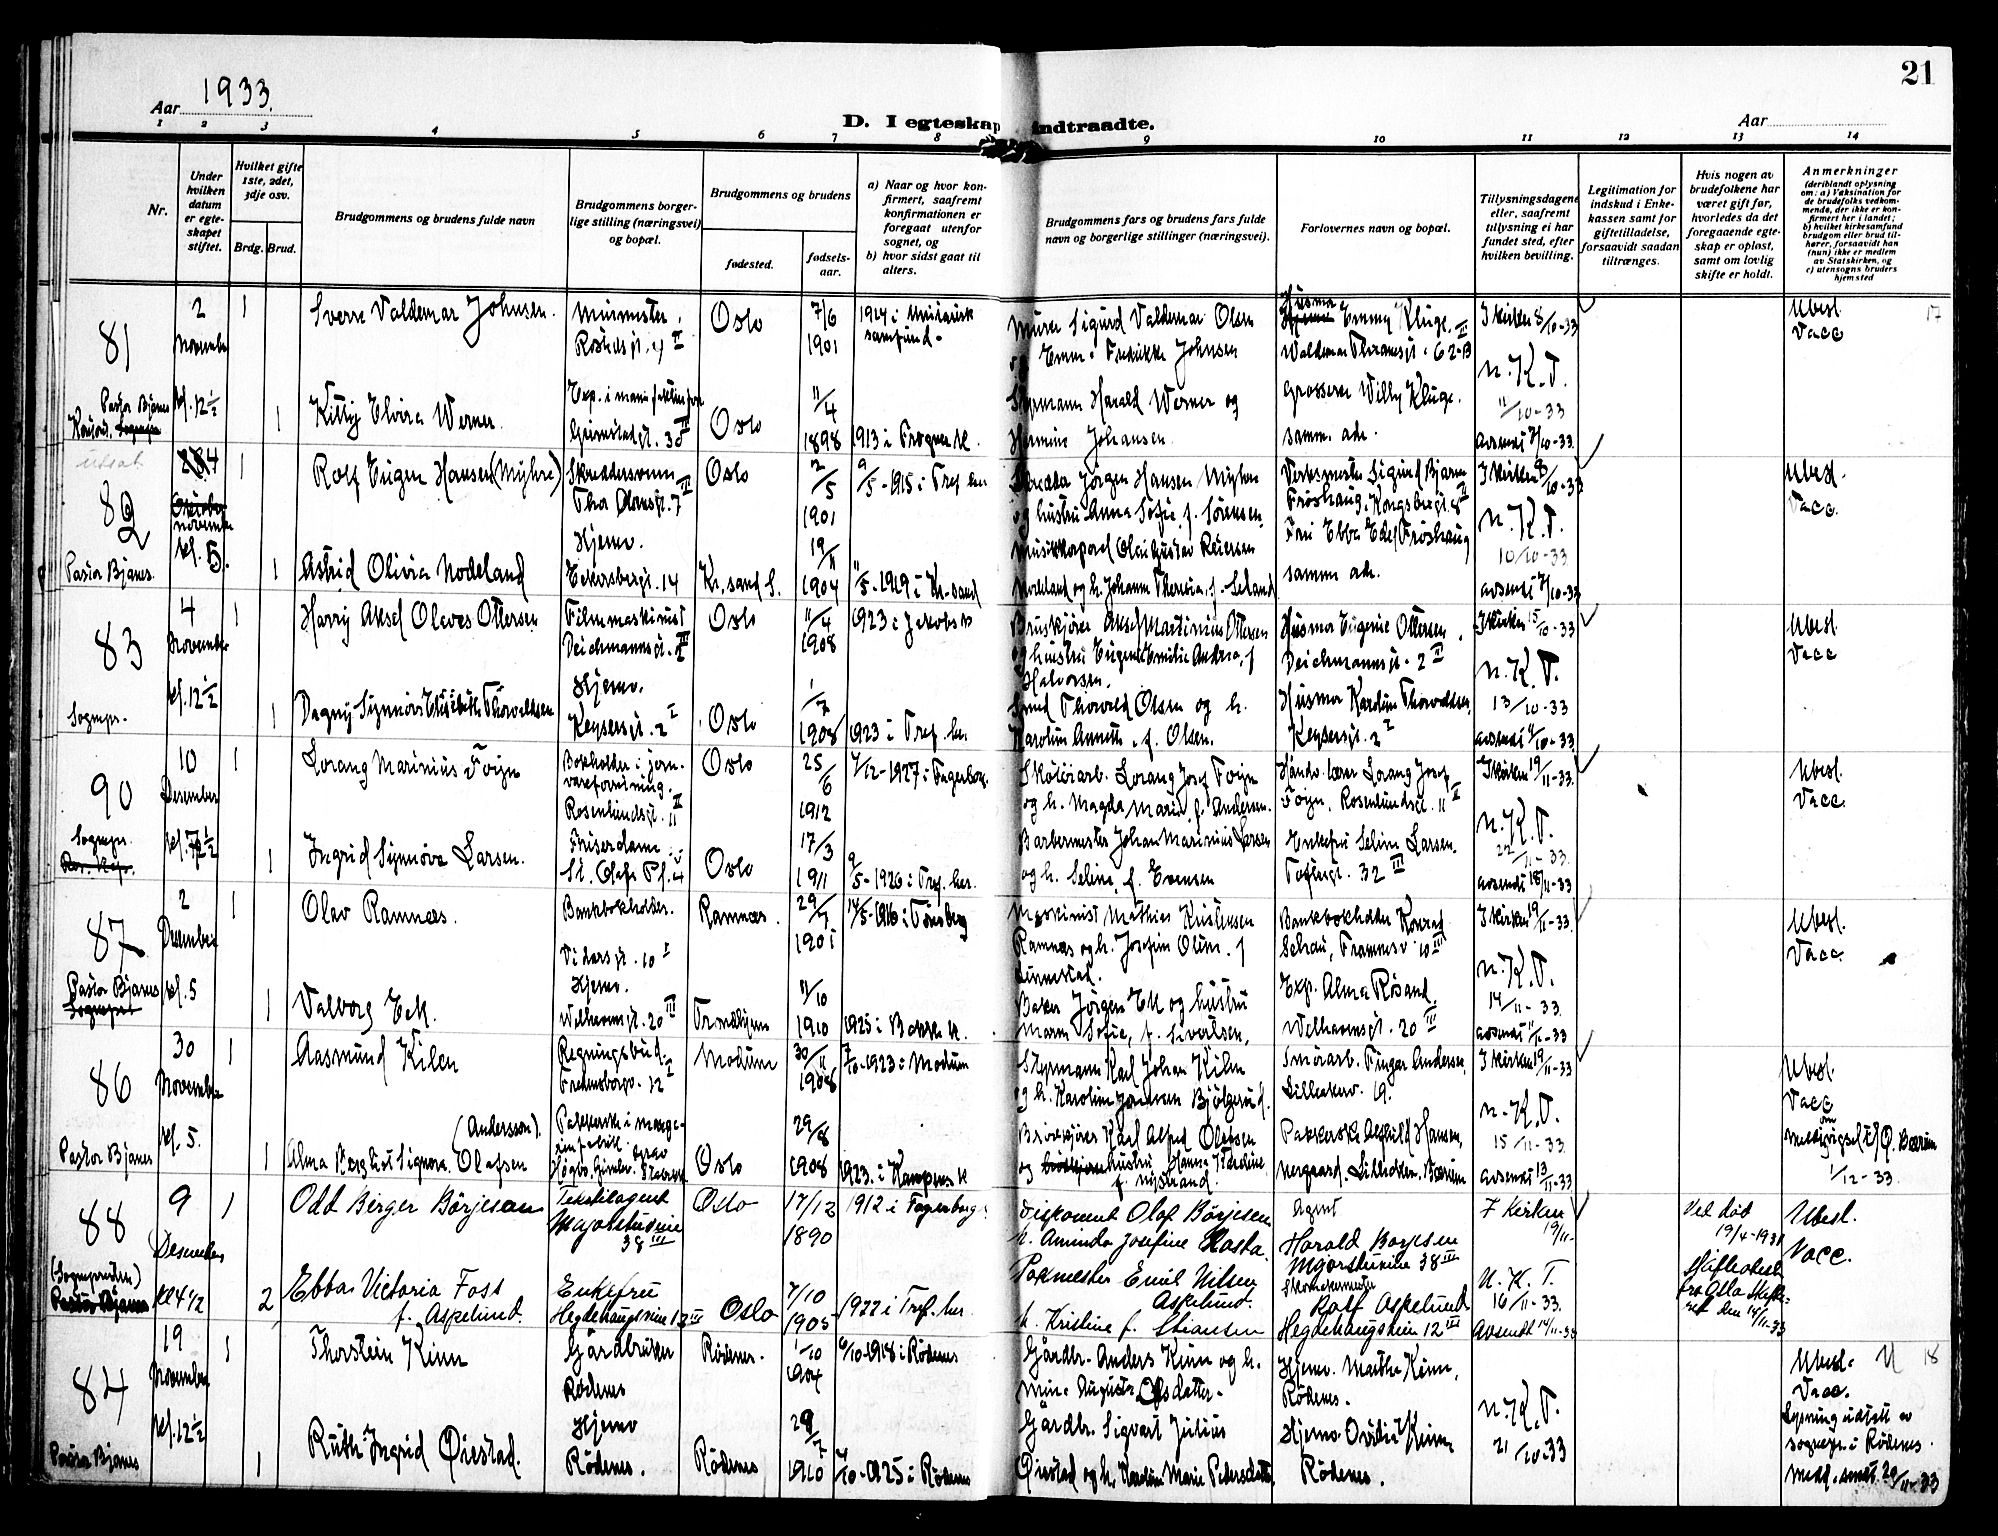 Aar 1933.
21
D. I egteskap indtraadte.
Aar
1 2 3 4 5 6 7 8 9 10 11 12 13 14
Nr.
Under hvilken datum er egteskapet stiftet.
Hvilket gifte 1ste, 2det, 3dje osv.
Brdg. Brud.
Brudgommens og brudens fulde navn
Brudgommens borgerlige stilling (næringsvei) og bopæl.
Brudgommens og brudens
fødested.
fødselsaar.
a) Naar og hvor konfirmert, saafremt konfirmationen er foregaat utenfor sognet, og
b) hvor sidst gaat til alters.
Brudgommens fars og brudens fars fulde navn og borgerlige stillinger (næringsvei).
Forlovernes navn og bopæl.
Tillysningsdagene eller, saafremt tillysning ei har fundet sted, efter hvilken bevilling.
Legitimation for indskud i Enkekassen samt for giftetilladelse, forsaavidt saadan tiltrænges.
Hvis nogen av brudefolkene har været gift før, hvorledes da det foregaaende egteskap er opløst, samt om lovlig skifte er holdt.
Anmerkninger (deriblandt oplysning om: a) Vaksination for de brudefolks vedkommende, der ikke er konfirmert her i landet; b) hvilket kirkesamfund brudgom eller brud tilhører, forsaavidt han (hun) ikke er medlem av Statskirken, og c) utensogns bruders hjemsted
81
2 November kl. 12½
1
Sverre Valdemar Johnsen.
Murmester.
Oslo
7/6 1901
Murer Sigurd Valdemar Olsen
Husmor Emmy Kluge.
I kirken 8/10-33
Ubesl. Vacc
17
Pastor Bjønes
1
Kitty Elvira Werner
Grimstadgt. 30
Oslo
11/4 1898
1913 i Frogner k.
Styrmann Harald Werner og Hermine Johansen
Grosserer Willy Kluge. samm. adr.
N.K.T. 11/10-33
avsendt 7/10-33.
82
4 november kl. 5.
1
Rolf Eugen Hansen (Myhre)
Oslo
2/5 1901
Skredder Jørgen Hansen Myhre og hustru Anna Sofie, f. Sørensen.
Verksmester Sigurd Bjarne Frøshaug, Kongsbergt. 8
I kirken 8/10-33
Ubesl. Vacc.
Pastor Bjønes.
1
Astrid Olivia Nodeland
Hjemv. Eckersbergt. 14
Kr. sand S.
1904
5-1919 i Kr. sand
Fru Ebba Edel Frøshaug samm adr.
N.K.T. 10/10-33
avsendt 7/10-33.
83
4 November kl. 12½
1
Harry Aksel Olaves Ottersen
Filmmaskinist Deichmannsgt. 2
Oslo
11/4 1908
1923 i Jakobs k
Bruskjører Aksel Martinius Ottersen og hustru Eugenie Emilie Andrea, f Halvorsen.
Husmor Eugenie Ottersen, Deichmannsgt. 2 II
I kirken 15/10-33
Ubesl. Vacc
Sognepr.
1
Dagny Synnøve Elisabeth Thorvaldsen
Hjemv. Keysersgt. 2 I
Oslo
1/7 1908
1923 i Tref. her
Smed Thorvald Olsen og h. Karoline Annette, f. Olsen.
Husmor Karoline Thorvaldsen, Keysersgt. 2 I
N.K.T. 13/10-33
90
10 Desember kl. 7½
1
Lorang Marinius Foyn
Bokholder i jernvareforretning. Rosenlundsgt. 11 II
Oslo
25/6 1912
4/12-1927 i Fagerborg.
Skotøiarb. Lorang Josef Foyn og h. Magda Marie, f. Andersen.
Håndv. lærer Lorang Josef Foyn, Rosenlundsgt. 11 II
I kirken 19/11-33.
Ubesl. Vacc.
Sognepr.
1
Ingrid Synnøve Larsen.
Friserdame. St. Olafs Pl. 4
Oslo
17/3 1911
5-1926 i Tref. her.
Barbermester Johan Marinius Larsen og h. Seline, f. Evensen
Enkefru Seline Larsen. Toftesgt. 32 III
N.K.T. 22/11-33.
avsendt 18/11-33
87
2 Desember kl. 5
1
Olav Ramnæs.
Bankbokholder. Vidarsgt. 10 I
Ramnæs.
29/7 1901
14/5-1916 i Tønsberg
Maskinist Mathias Kristensen Ramnæs og h. Josefine Oline, f Linnestad.
Bankbokholder Konrad Schau, Framnesv 10 III
I kirken 19/11-33.
Ubesl. Vacc.
Pastor Bjønes
1
Valborg Eek.
Hjemv. Welhavensgt. 20 III
Trondhjem
11/10 1910
1925 i Bakke k.
Baker Jørgen Ek og hustru Maren Sofie, f. Sivertsen,
Exp. Alma Røsand. Welhavensgt. 20 III
N.K.T. 14/11-33
avsendt 11/11-33
86
30 November kl. 5.
1
Aasmund Kilen
Regningsbud. Fredensborgv. 12 I
Modum
30/11 1908
7/10-1923 i Modum
Styrmann Karl Johan Kilen og h. Karoline Bjølgerud.
Smørarb. Fingar Andersen, Lilleakerv. 19.
I kirken 19/11-33
Ubesl. Vacc
Pastor Bjønes
1
Alma Ragnhild Signora Olafsen (Andersson).
Oslo
29/8 1908
1923 i Kampens k
Brødkjører Karl Alfred Olafsen og hustru Hanna Nardine f. Nystrand.
Pakkerske Aghild Hansen, nergaard. Lilleaker. Bærum
N.K.T. 15/11-33.
avsendt 13/11-33
1/12-33.
88
9 Desember kl 4½
1
Odd Berger Børjesen
Tekstilagent Majorstuveien 38 III
Oslo
17/12 1890
1912 i Fagerborg
Disponent Olof Børjesen h. Aminda Josefine Rosta.
Agent Harald Børjesen Majorstuveien 38 III
I Kirken 19/11-
Ved død 19/4-1931
Ubesl. Vacc.
(Sognepresten)
2
Ebba Victoria Fost f. Aspelund.
Enkefru Hegdehaugsveien 12 III
Oslo
7/10 1905
1922 i Tref. her.
Pakmester Emil Nilsen Aspelund. h. Kristine f. Stiansen
Rolf Aspelund Hegdehaugsveien 12 III
N.K.T. 16/11-33.
Avsendt 14/11-33
Skifteattest fra Oslo skifteret den 14/11-33
84
19 November kl. 12½
1
Thorstein Kinn
Gårdbruker Rødenes
Rødenes.
1/10 1904
6/10-1918 i Rødenes
Gårdbr. Anders Kinn og h. Mina Augusta Olsdatter.
Hjemv. Marthe Kinn, Rødenes.
Ubesl. Vacc.
18
Pastor Bjønes
1
Ruth Ingrid Øiestad.
Hjemv Rødenes.
Rødenes
28/7 1910
4/10-1925 i Rødenes
Gårdbr. Sigvart Julius Øiestad og h. Karoline Marie Pedersdatter
Hjemv. Ovidia Kinn Rødenes.
N.K.T. 21/10-33
Lysning utstedt av sognepr. i Rødenes.